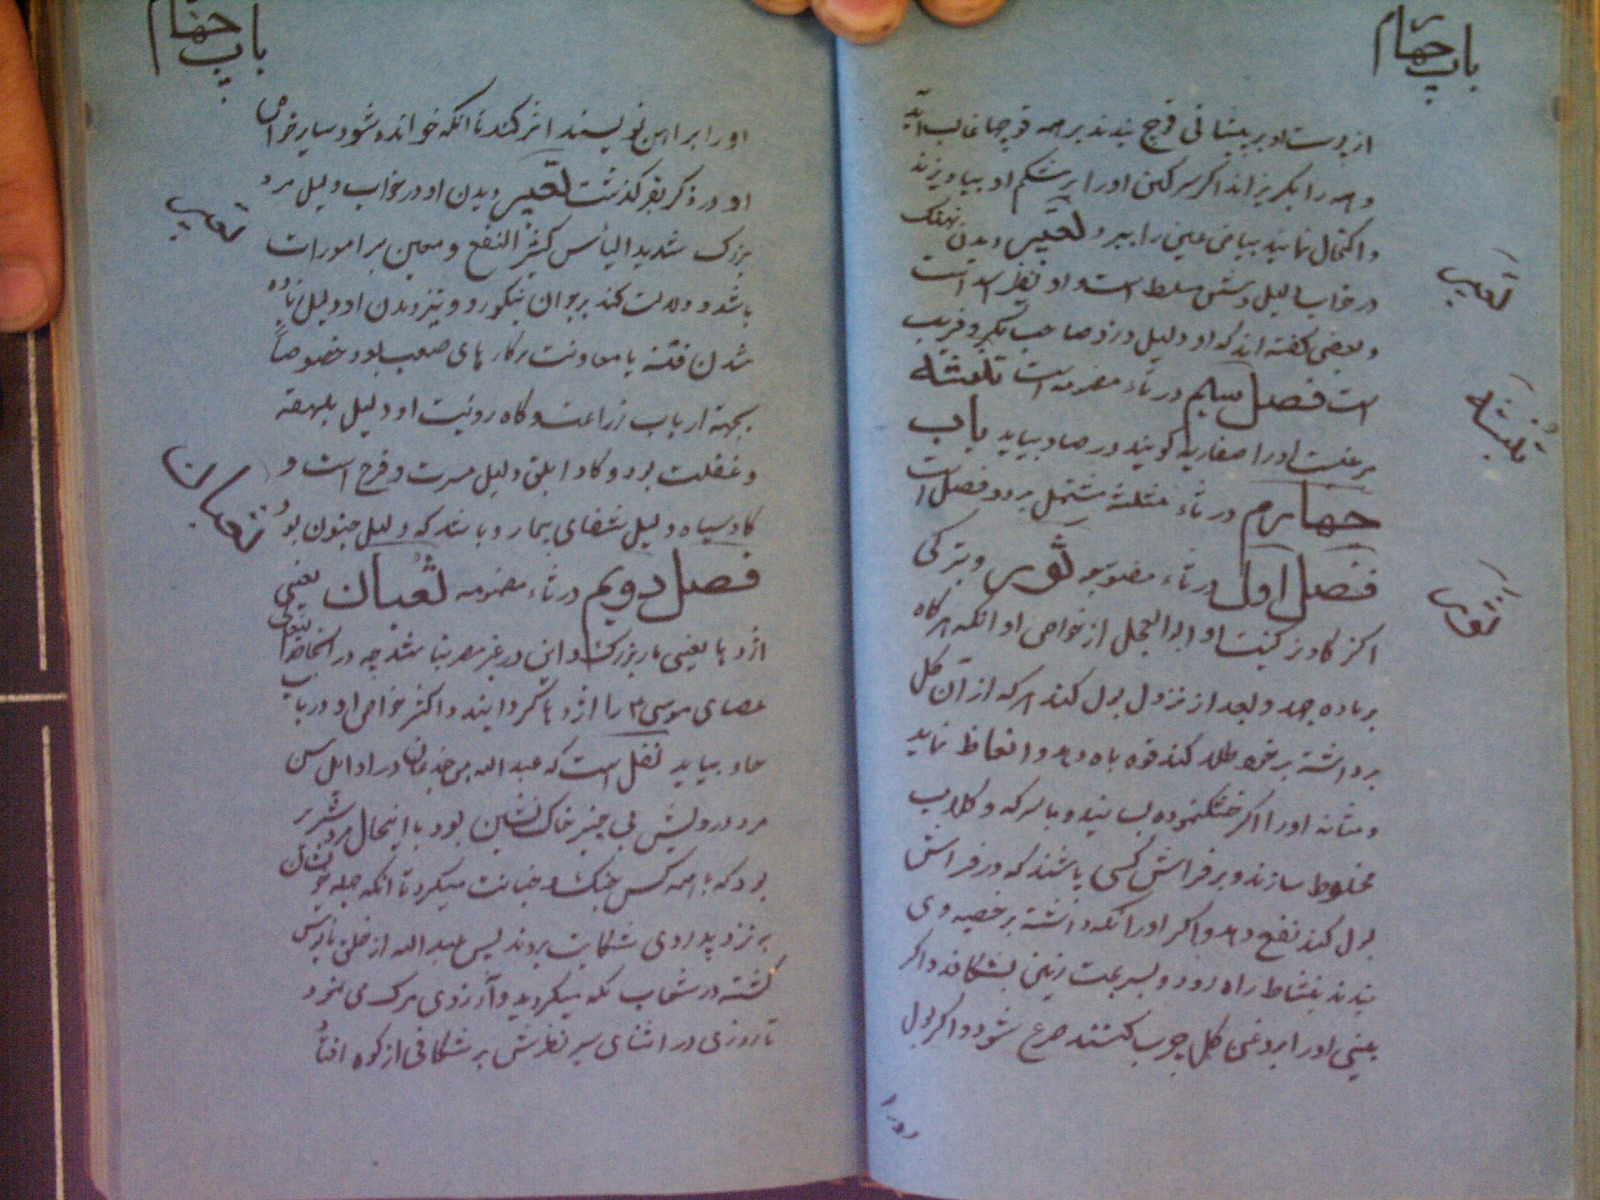 باب چهارم
از پوست او بر پیشانی قوچ بندند بر همه قوچها غالب آید
و همه را بگریزاند اگر سرکین او را بر شکم او بیاویزند
و اکتحال نمایند بیاض عین را ببرد تعبیر دیدن
در خواب دلیل دشمن مسلط است و او نظیر اسد است
و بعضی گفته اند که او دلیل دزد صاحب مکر و فریب
است فصل سیم در تاء مضمومه است
مرغیست او را صفاریه گویند در صاد بیاید باب
چهارم در ثاء مثلثه مشتمل بر دو فصل است
فصل اول در ثاء مفتوحه ثور و بترکی
اکز گاو نر کنیت او ابو العجل از خواص او آنکه هرگاه
بر ماده جهد و بعد از نزول بول کند هر که از آن گل
برداشته بر طلا کند قوه باه دهد و انعاظ نماید
و مثانه او را اگر خشکنموده بسایند و با سرکه و گلاب
مخلوط سازند و بر فراش کسی پاشند که در فراش
بول کند نفع دهد و اگر او را نکه داشته بر خصیه وی
بندند بنشاط راه رود و بسرعت زمین بشکافد و اگر
بینی او را بروغن گل چرب کنند صرع شود و اگر بول
تعبیر
ثور
باب چهارم
او را بر آهن نویسند اثر کند تا آنکه خوانده شود سایر خواص
او در ذکر بقر گذشت تعبیر دیدن او در خواب دلیل مرد
بزرگ شدید البأس کثیر النفع و معین بر امورات
باشد و دلالت کند بر جوان نیکورو و نیز دیدن او دلیل
شدن فتنه یا معاونت بر کارهای صعب بود خصوصاً
بجهته ارباب زراعت و گاه رؤیت او دلیل
و غفلت بود و گاو ابلق دلیل مسرت و فرح است و
گاو سیاه دلیل شفای بیمار و باشد که دلیل جنون بود
فصل دویم در ثاء مضمومه ثعبان یعنی
اژدها یعنی مار بزرگ و این در غیر مصر نباشد چه در
عصای موسی را اژدها گردانیدند و اکثر خواص او در باب
حاء بیاید نقل است که عبد الله بن جذعان در اوایل سن
مرد درویش بی چیز خاک نشین بود با اینحال مرد شریر
بود که با همه کس جنک و خیانت میکرد تا آنکه
بر نزد پدر وی شکایت بردند پس عبد الله از خلق مایوس
گشته در شعاب مکه میگردید و آرزوی مرگ می نمود
تا روزی در اثنای سیر نظرش بر شکافی از کوه افتاد
تعبیر
ثعبان